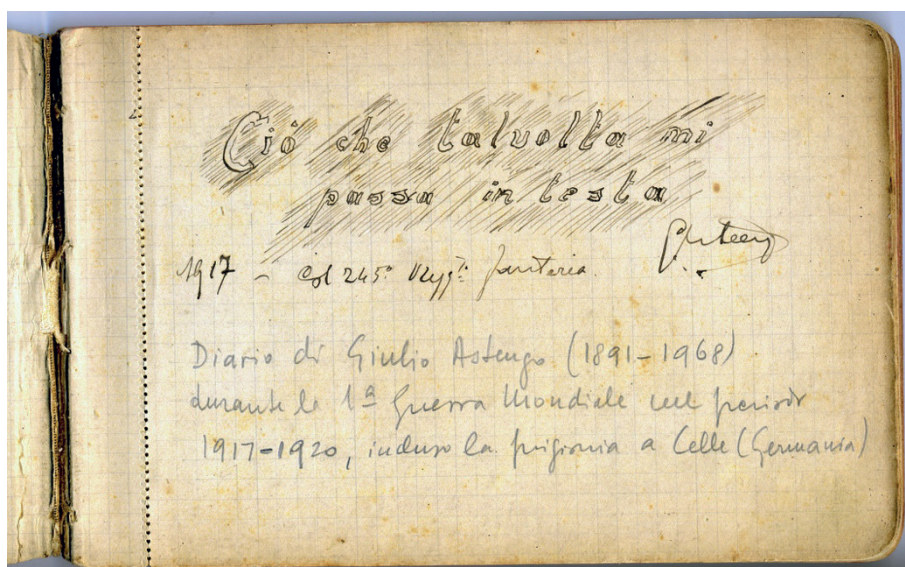 Ciò che talvolta mi
passa in testa
1917 - Col 245º Regg.to fanteria
Diario di Giulio Astengo (1891-1968)
durante la 1ª Guerra Mondiale nel periodo
1917-1920, incluso la prigionia a Celle (Germania)